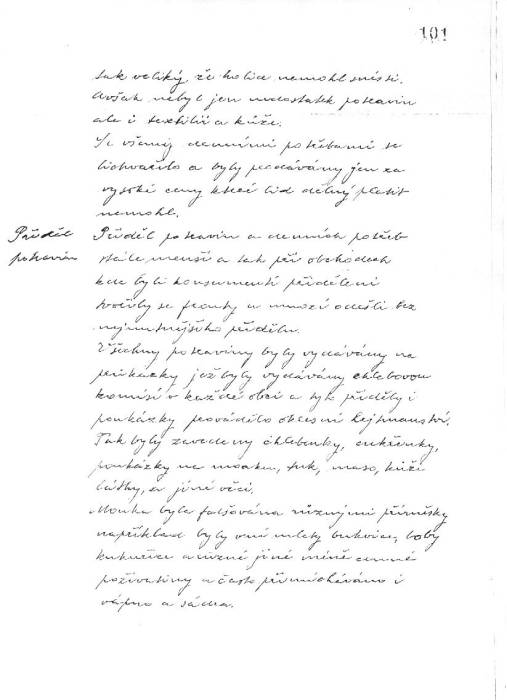 101
tak veliký, že ho lid nemohl snísti.
Avšak nebyl jen nedostatek potravin
ale i textilií a kůže.
Se všemi denními potřebami se
lichvařilo a byly prodávány jen za
vysoké ceny které lid dělný platit
nemohl.
Příděl
potravin
Příděl potravin a denních potřeb
stále menší a tak při obchodech
kde byli konsumenti přiděleni
tvořily se fronty a mnozí odešli bez
nejnutnějšího přídělu.
Všechny potraviny byly vydávány na
poukázky jež byly vydávány chlebovou
komisí v každé obci a tyto příděly i
poukázky provádělo okresní hejtmanství.
Tak byly zavedeny chlebenky, cukřenky,
poukázky na mouku, tuk, maso, kůži
látky, a jiné věci.
Mouka byla falšována různými příměsky
například byly v ní mlety bukvice, boby
kukuřice a různé jiné méně cenné
poživatiny a často přimícháváno i
vápno a sádra.